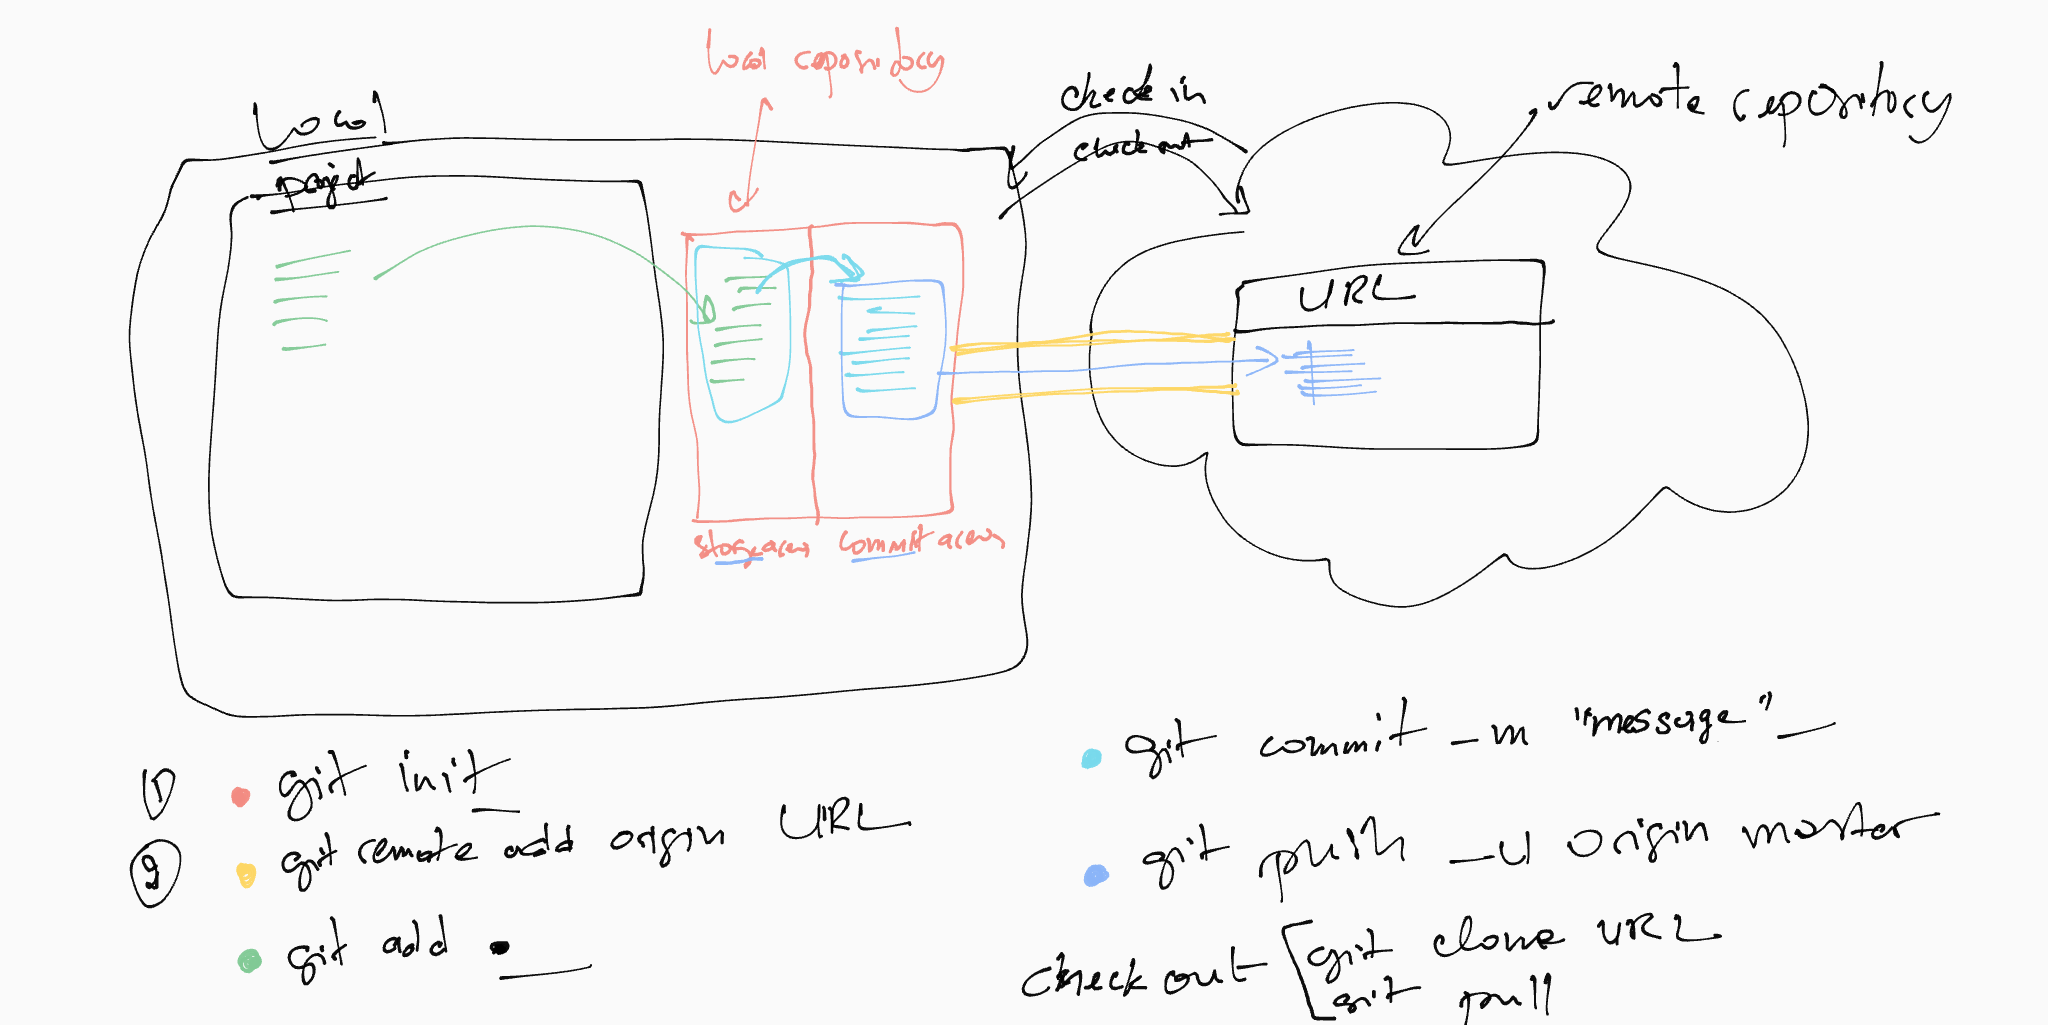 local repository
local
project
check in
check out
remote repository
URL
stage area
commit area
1 git init
2 git remote add origin URL
git add .
git commit -m "message"
git push -u origin master
check out git clone URL
git pull